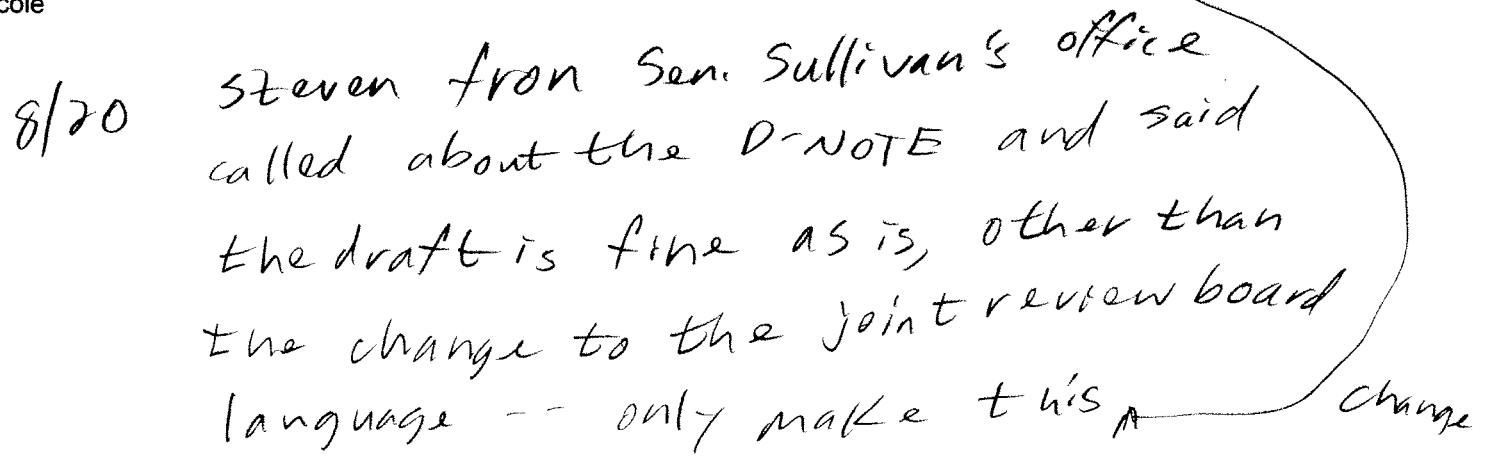 cole
8/20 Steven fron Sen. Sullivan's office
called about the D-NOTE and said
the draft is fine as is, other than
the change to the joint review board
language -- only make this change